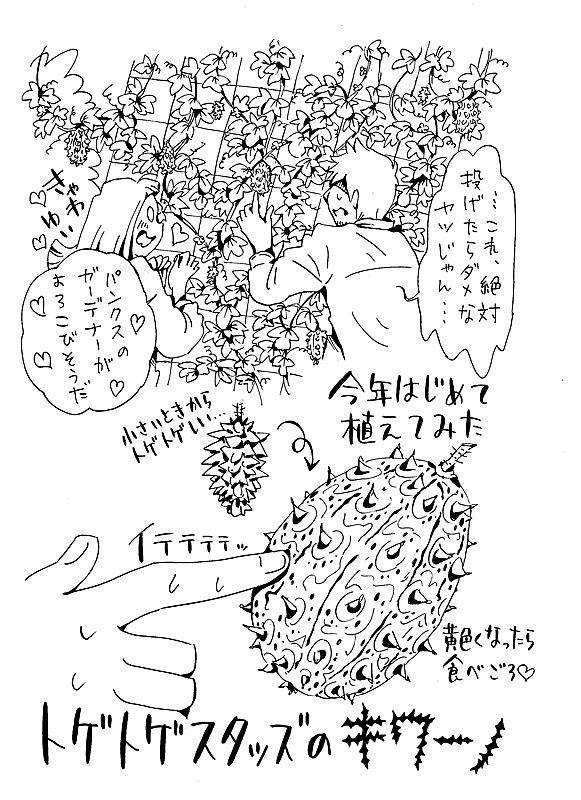 …これ、絶対
投げたらダメな
ヤツじゃん…
きゃわ
ゆい
パンクスの
ガーデナーが
よろこびそうだ
今年はじめて
植えてみた
小さいときから
トゲトゲしい…
イテテテテッ
黄色くなったら
食べごろ♡
トゲトゲスタッズのキワーノ